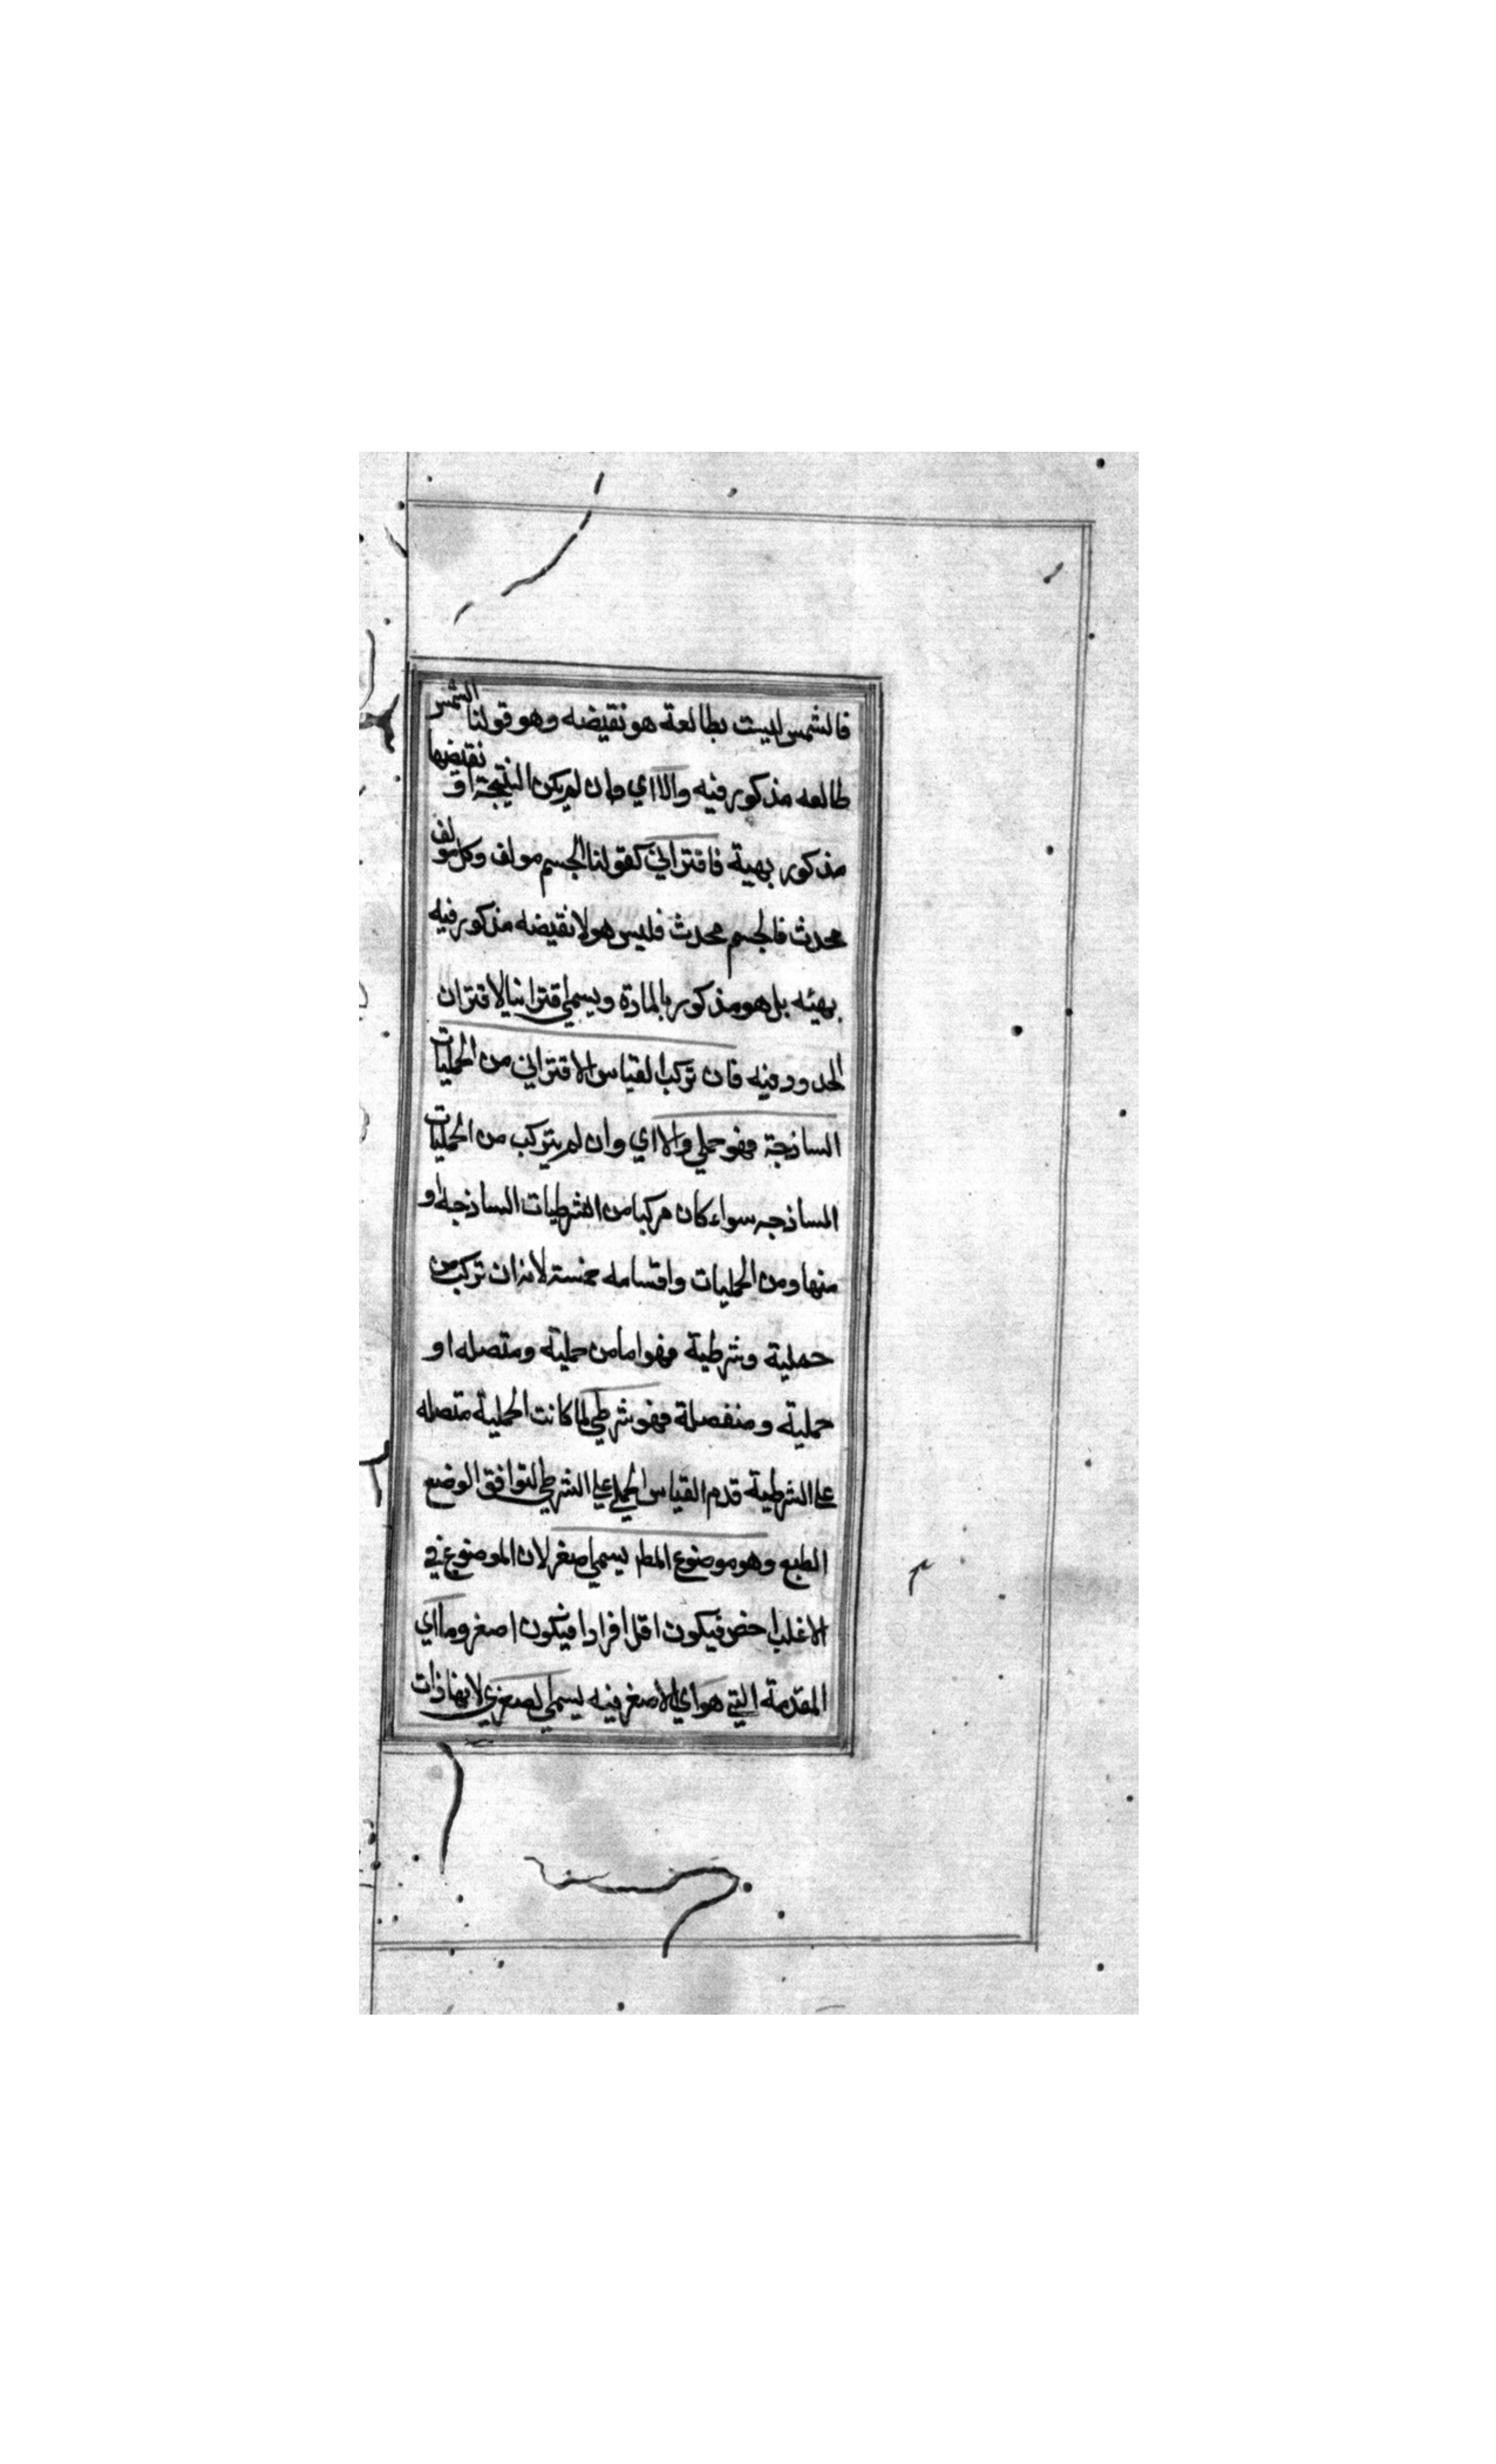 فالشمس ليست بطالعة هو نقيضه وهو قولنا الشمس
طالعه مذكور فيه والا اي وان لم يكن النتيجة او نقيضها
مذكور بهية فاقتراني كقولنا الجسم مولف وكل مولف
محدث فالجسم محدث فليس هو لا نقيضه مذكور فيه
بهيئه بل هو مذكور بالمادة ويسمي اقترانيا لاقتران
الحدود فيه فان تركب القياس الاقتراني من الحمليات
الساذجة فهو حملي والا اي وان لم يتركب من الحمليات
الساذجه سواء كان مركبا من الشرطيات الساذجه او
منها ومن الحمليات واقسامه خمسة لانه ان تركب من
حملية وشرطية فهو اما من حملية ومتصله او
حملية ومنفصلة فهو شرطي لما كانت الحملية متصله
علي الشرطية قدم القياس الحملي علي الشرطي لتوافق الوضع
الطبع وهو موضوع المط يسمي اصغر لان الموضوع في
الاغلب اخص فيكون اقل افرادا فيكون اصغر وما اي
المقدمة التي هو اي الاصغر فيه يسمي الصغري لانها ذات